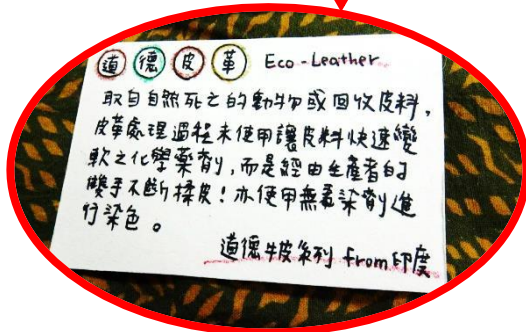 道德皮革 Eco-Leather
取自自然死亡的動物或回收皮料，
皮革處理過程未使用讓皮料快速變
軟之化學藥劑，而是經由生產者的
雙手不斷揉皮！亦使用無毒染劑進
行染色。
道德牛皮系列 from 印度